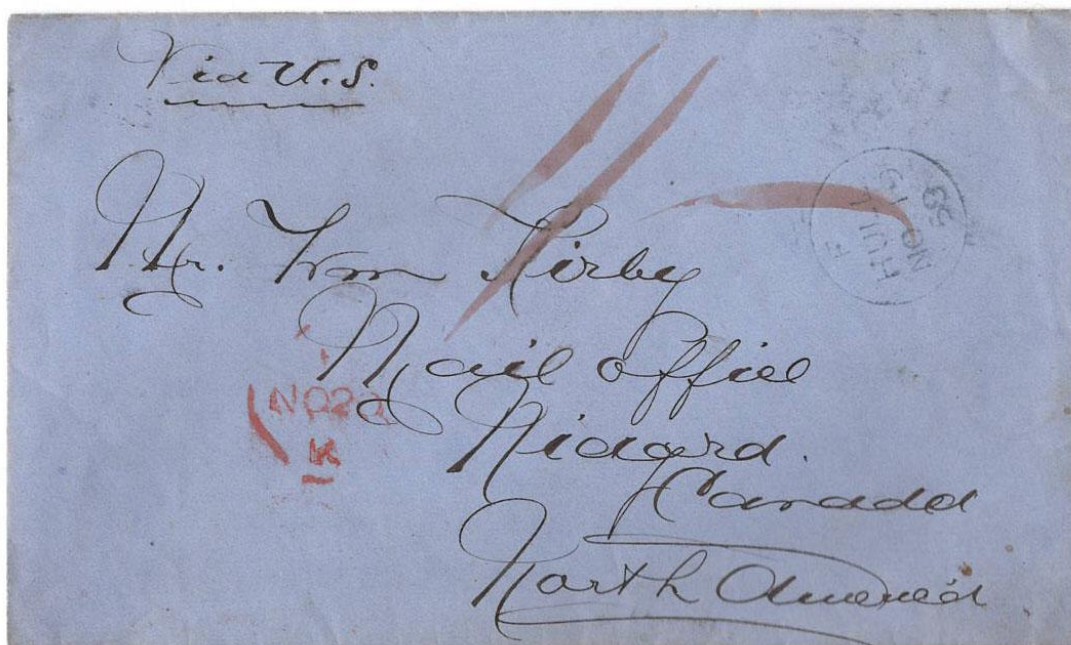 Via U.S.
Mr. Wm Kirby
Mail office
Niagara.
Canada
North America
F
HULL
NO 19
59
K